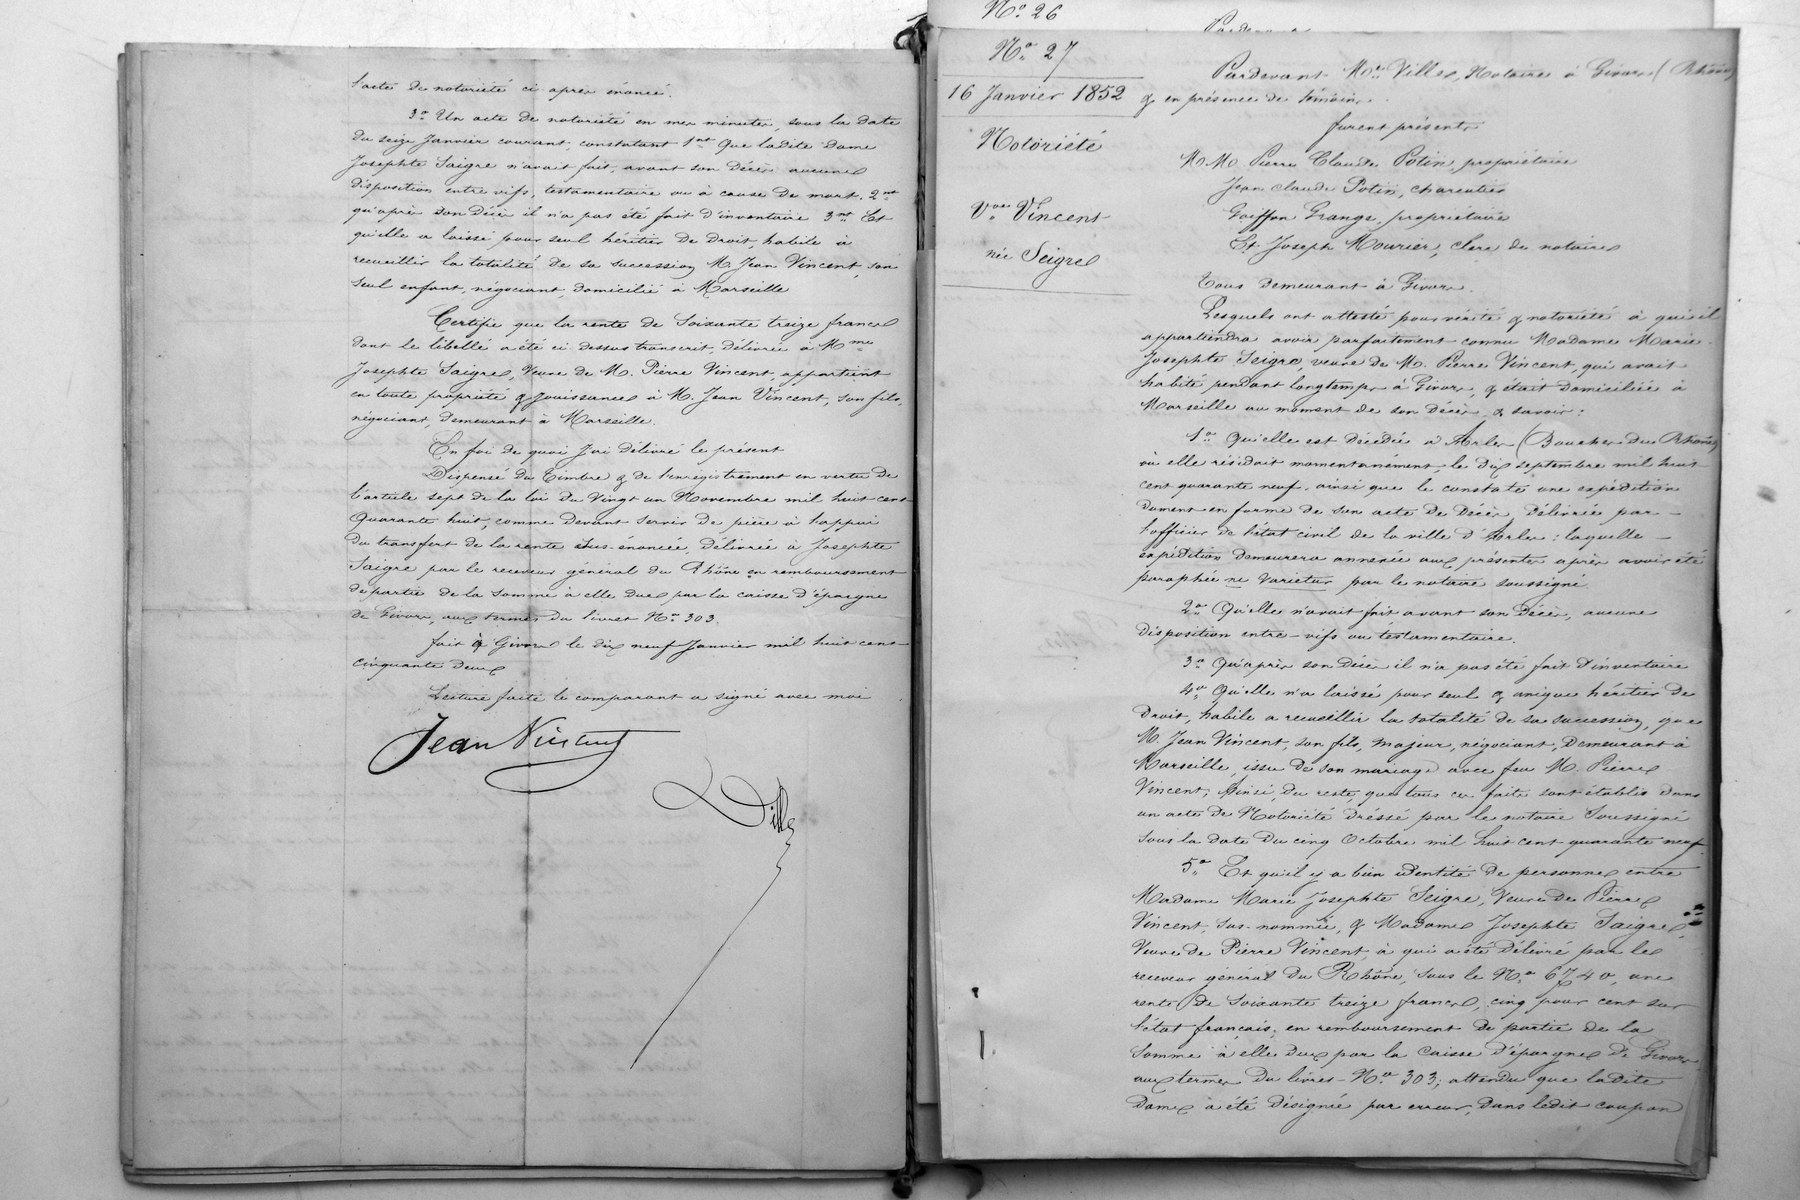 l'acte de notoriété ci après énoncé.
3° Un acte de notoriété en mes minutes, sous la date
du seize Janvier courant, constatant 1nt Que ladite Dame
Josephte Saigre n'avait fait, avant son Décès aucune
disposition entre vifs, testamentaire ou à cause de mort. 2nt
qu'après son Décès il n'a pas été fait d'inventaire 3nt Et
qu'elle a laissé pour seul héritier de Droit, habile à
recueillir la totalité de sa succession M. Jean Vincent, son
seul enfant, négociant, domicilié à Marseille
Certifie que la rente de Soixante treize francs
dont le libellé a été ci dessus transcrit, délivrée à Mme
Josephte Saigre, Veuve de M. Pierre Vincent, appartient
en toute propriété & jouissance à M. Jean Vincent, son fils,
négociant, demeurant à Marseille.
En foi de quoi j'ai délivré le présent
Dispensé du Timbre & de l'enregistrement en vertu de
l'article sept de la loi du Vingt un Novembre mil huit cent
Quarante huit, comme devant servir de pièce à l'appui
du transfert de la rente sus-énoncée, délivrée à Josephte
Saigre par le receveur général du Rhône en remboursement
de partie de la somme à elle due par la caisse d'épargne
de Givors, aux termes du livret N° 303.
fait à Givors le dix neuf Janvier mil huit cent
cinquante deux
Lecture faite le comparant a signé avec moi
Jean Vincent
Ville
N° 26
N° 27
16 Janvier 1852
Notoriété
Vve Vincent
née Seigre
Pardevant Me Ville, Notaire à Givors (Rhône)
& en présence de témoins.
furent présents
M.M. Pierre Claude Potin, propriétaire
Jean Claude Potin, charcutier
Goiffon Grange, propriétaire
Et Joseph Mourier, clerc de notaire
Tous demeurant à Givors.
Lesquels ont attesté pour vérité & notoriété à qui il
appartiendra avoir parfaitement connu Madame Marie
Josephte Seigre, veuve de M. Pierre Vincent, qui avait
habité pendant longtemps à Givors, & était domiciliée à
Marseille au moment de son Décès, & savoir :
1° Qu'elle est décédée à Arles (Bouches du Rhône)
où elle résidait momentanément, le dix septembre mil huit
cent quarante neuf, ainsi que le constate une expédition
dument en forme de son acte de Décès, délivrée par
l'officier de l'état civil de la ville d'Arles : laquelle
expédition demeurera annexée aux présentes après avoir été
paraphée ne varietur par le notaire soussigné.
2° Qu'elle n'avait fait avant son Décès, aucune
disposition entre-vifs ou testamentaire.
3° Qu'après son Décès il n'a pas été fait d'inventaire
4° Qu'elle n'a laissé pour seul & unique héritier de
Droit, habile a recueillir la totalité de sa succession, que
M. Jean Vincent, son fils, majeur, négociant, demeurant à
Marseille, issu de son mariage avec feu M. Pierre
Vincent, Ainsi, du reste, que tous ces faits sont établis dans
un acte de Notoriété dressé par le notaire Soussigné
sous la date du cinq Octobre mil huit cent quarante neuf.
5° Et qu'il y a bien identité de personnes entre
Madame Marie Josephte Seigre, Veuve de Pierre
Vincent, sus-nommée, & Madame Josephte Saigre,
Veuve de Pierre Vincent, à qui a été délivré par le
receveur général du Rhône, sous le N° 6740, une
rente de soixante treize francs, cinq pour cent sur
l'état français, en remboursement de partie de la
somme à elle due par la Caisse d'épargne de Givors
aux termes du livret N° 303 ; attendu que ladite
Dame a été désignée par erreur, dans ledit coupon